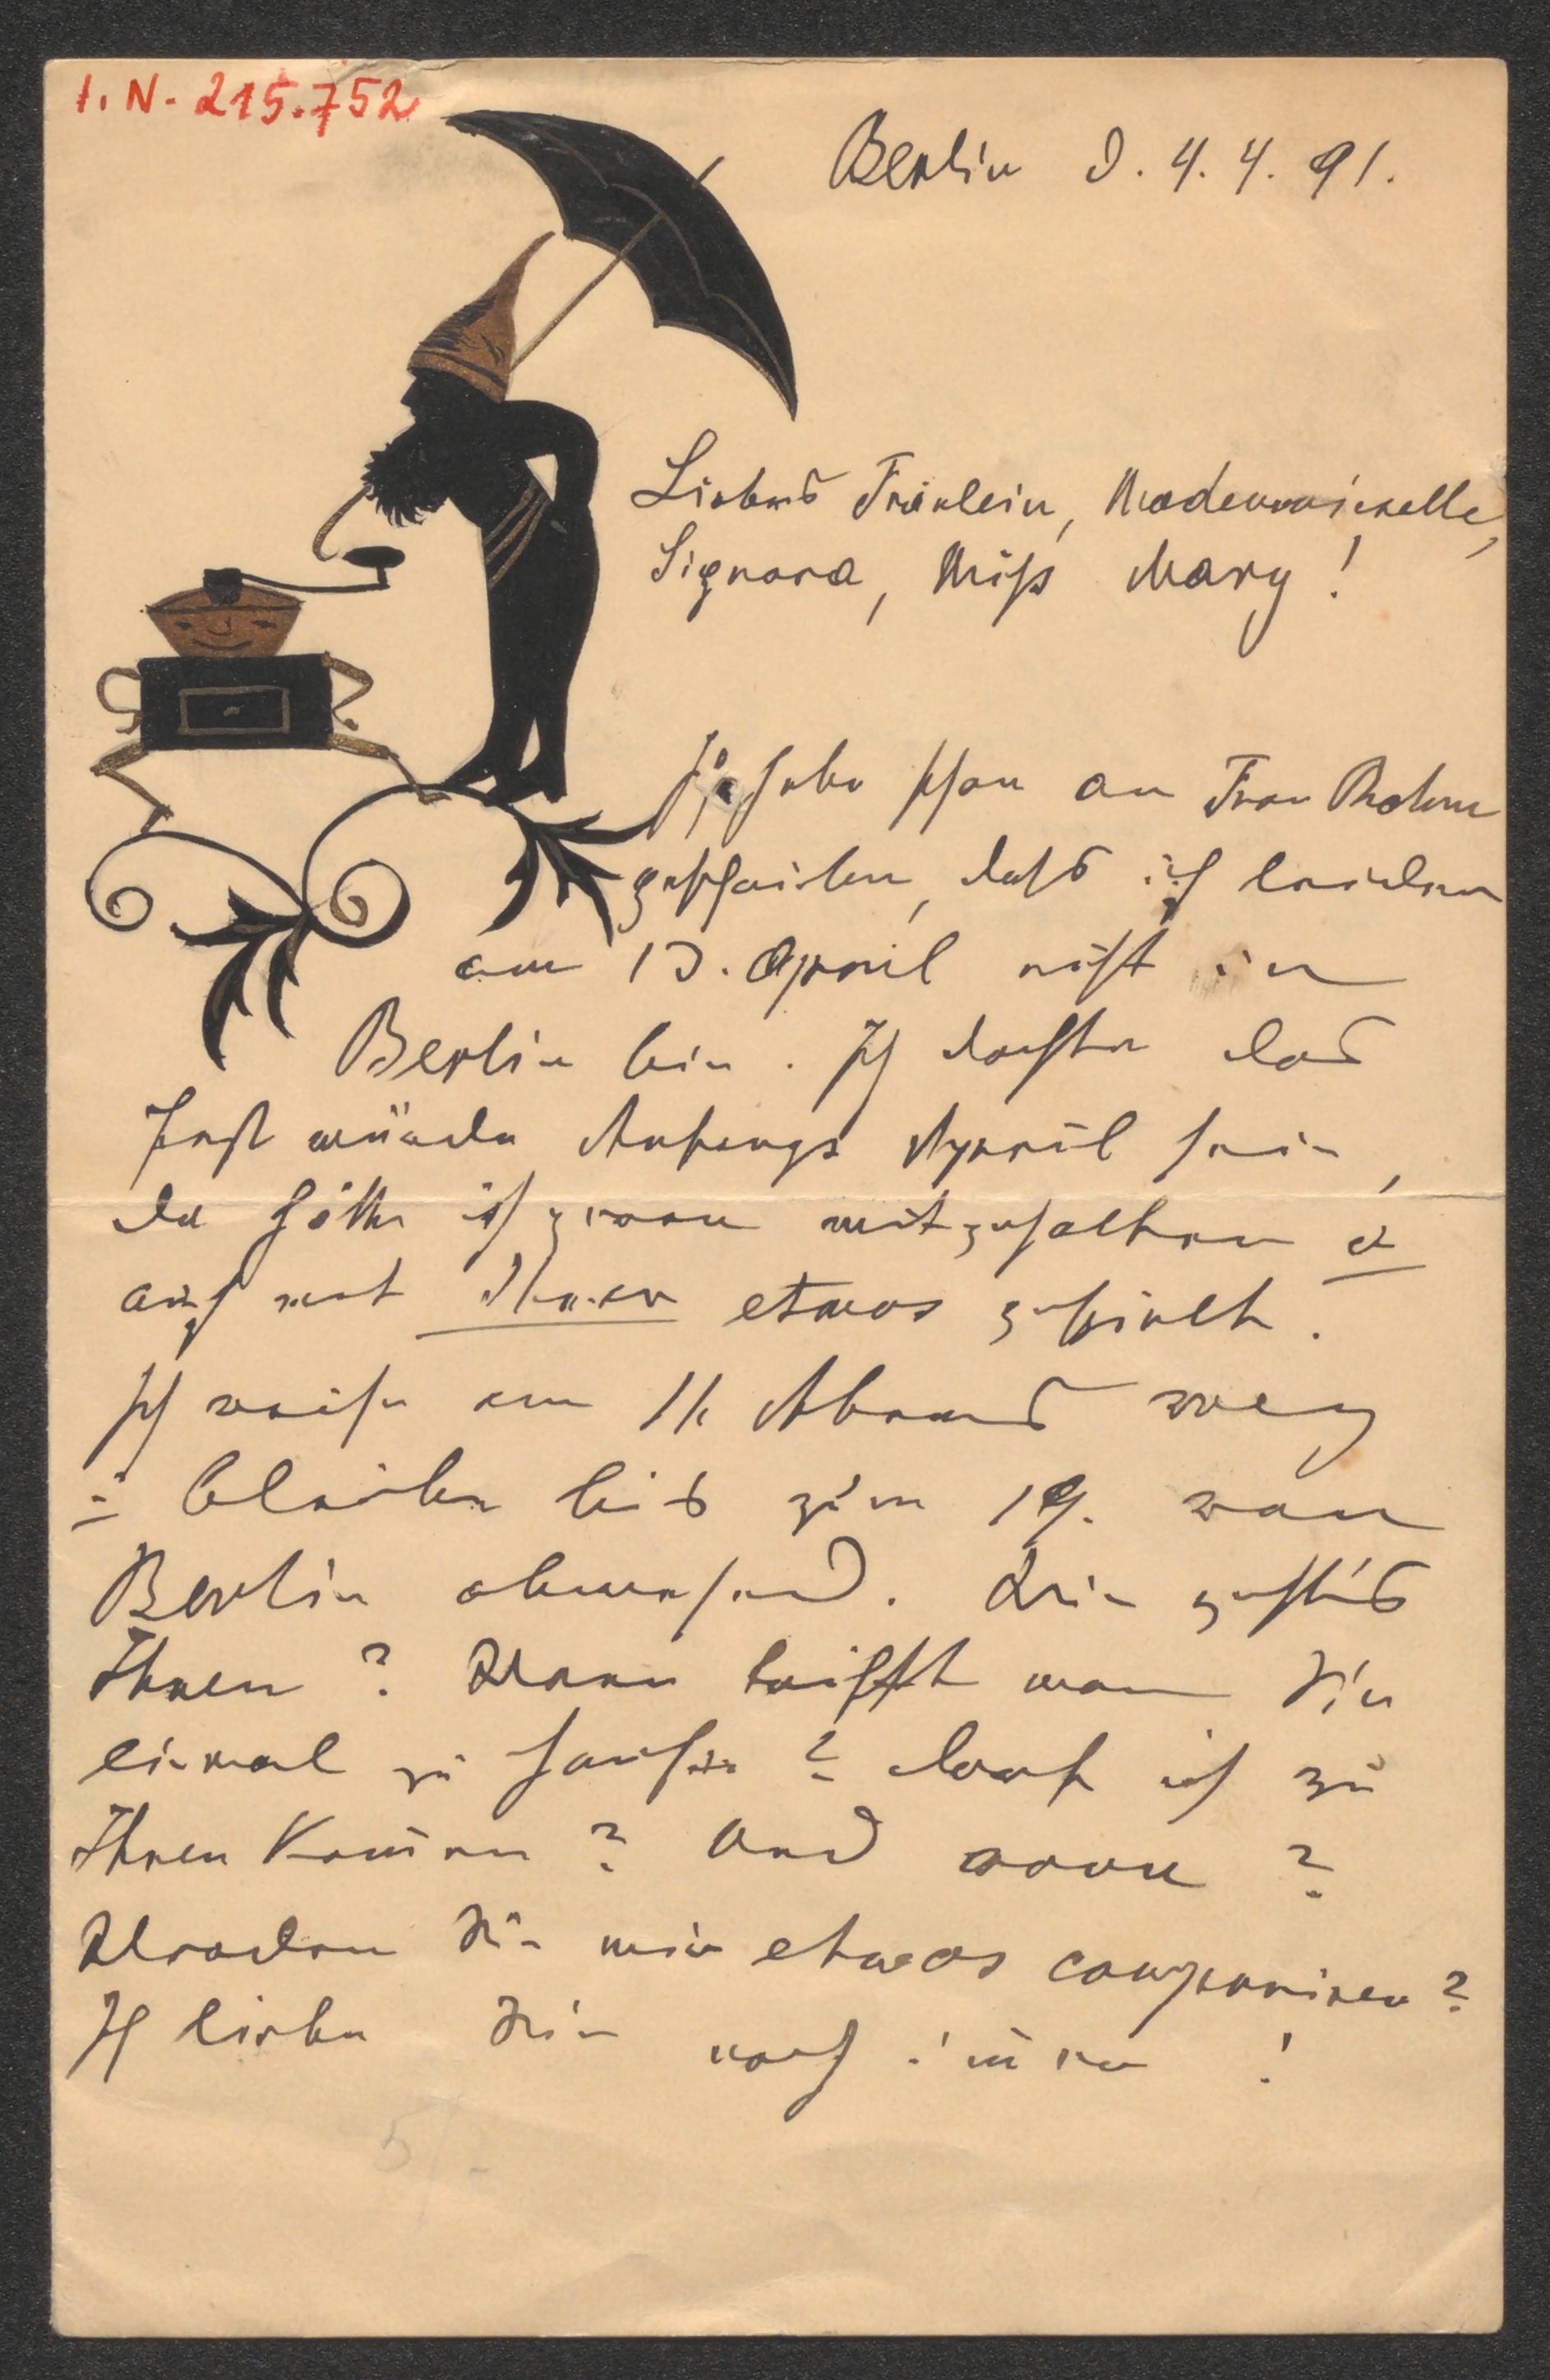 I. N. 215.752
Berlin d. 4. 4. 91.
Liebes Fräulein, Mademoiselle,
Signora, Miss Mary!
Ich habe schon an Frau
geschrieben, dass ich leider
am 13. April nicht in
Berlin bin. Ich dachte das
Fest würde Anfangs April sein,
da hätte ich gern mitgehalten &
auch mit Ihnen etwas gespielt.
Ich reise am 11. Abends weg
u bleibe bis zum 19. von
Berlin abwesend. Wie geht's
Ihnen? Wann trifft man Sie
einmal zu Hause? Darf ich zu
Ihnen kom̄en? Und wann?
Werden Sie mir etwas componiren?
Ich liebe Sie noch im̄er!